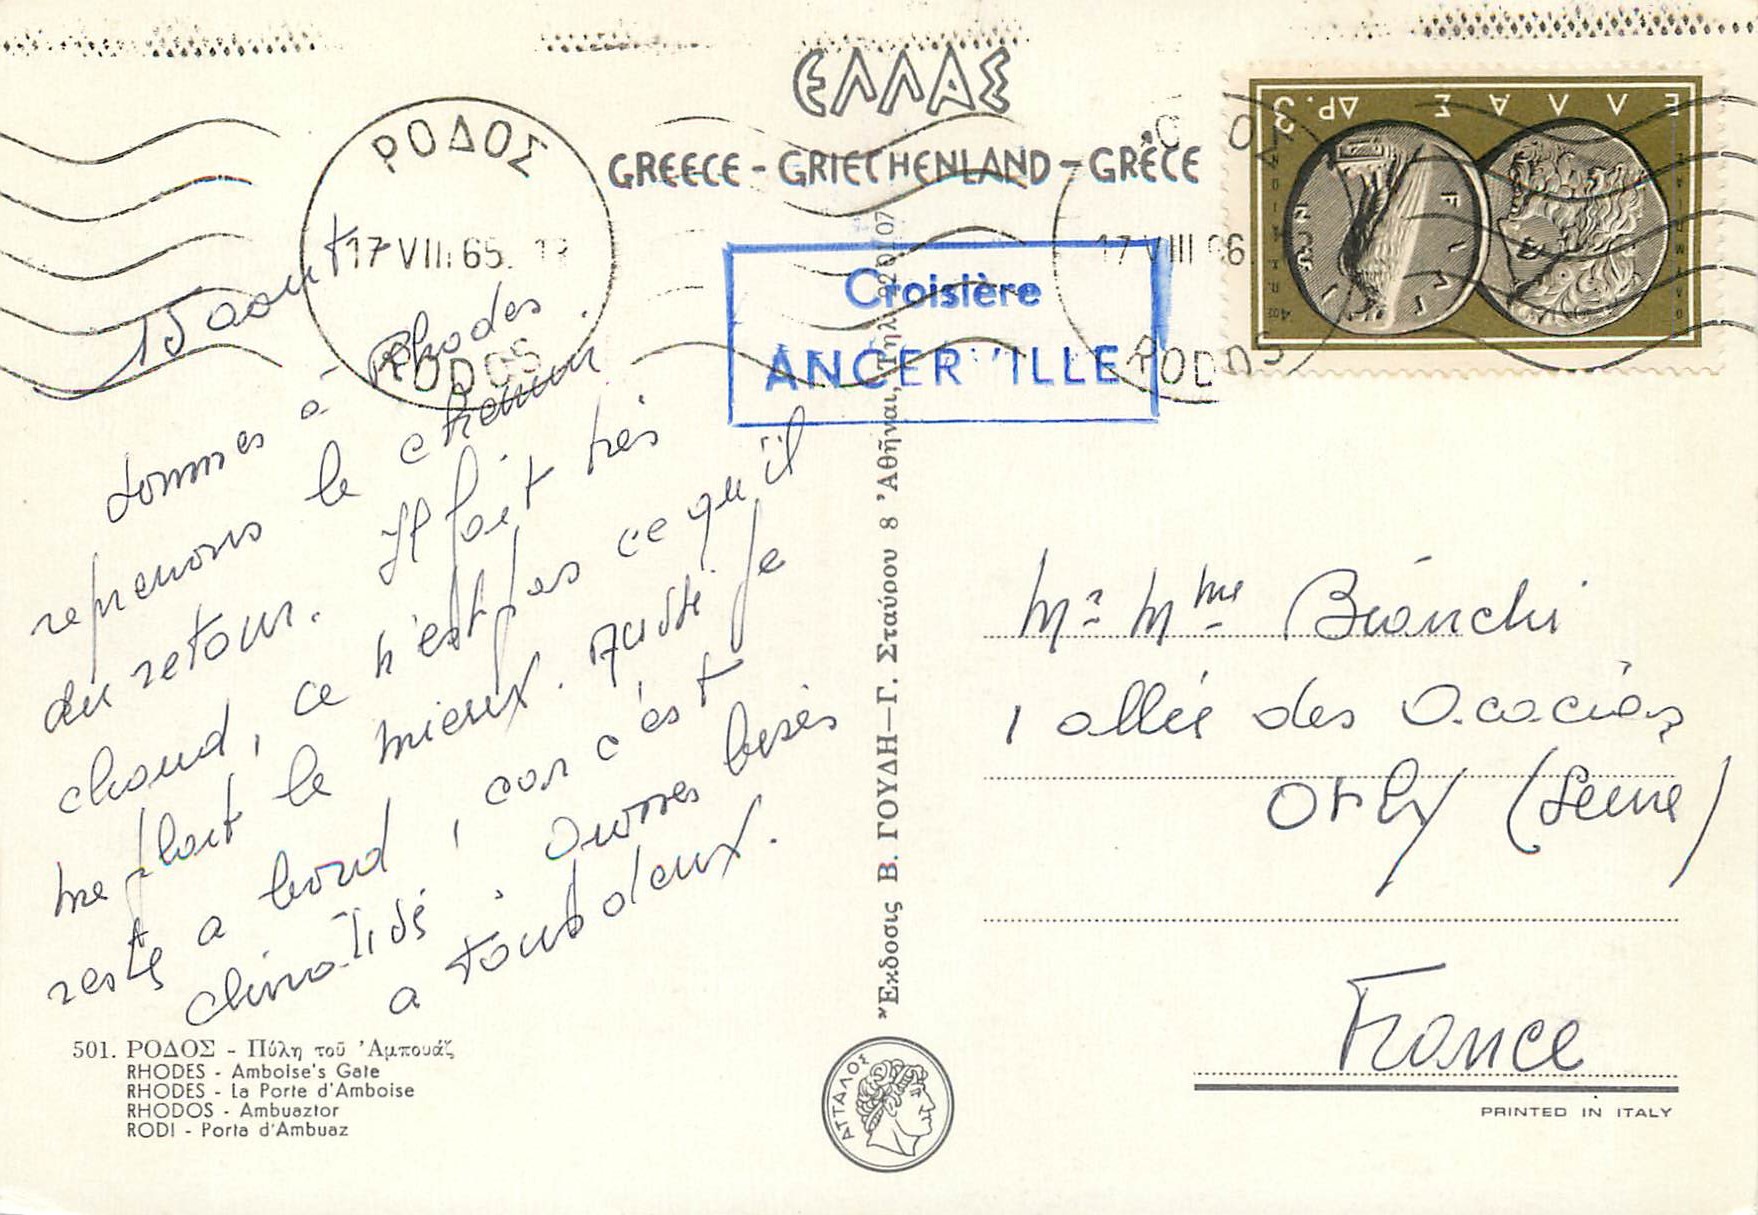 ΕΛΛΑΣ
GREECE - GRIECHENLAND - GRÈCE
ΡΟΔΟΣ
17 VIII 65
RODOS
17 VIII 6
RODOS
Croisière
ANCERVILLE
ΕΛΛΑΣ ΔΡ. 3
15 aout
sommes à Rhodes.
reprenons le chemin
du retour. Il fait très
chaud, ce n'est pas ce qu'il
me plait le mieux. Aussi je
reste a bord, car c'est
climatisé. Bonnes bises
a tous deux.
Mr Mme Bianchi
1 allée des Acacias
Orly (Seine)
France
Ἔκδοσις Β. ΓΟΥΔΗ—Γ. Σταύρου 8 Ἀθῆναι, Τηλ. 220107
501. ΡΟΔΟΣ - Πύλη τοῦ Ἀμπουάζ
RHODES - Amboise's Gate
RHODES - La Porte d'Amboise
RHODOS - Ambuaztor
RODI - Porta d'Ambuaz
ΑΤΤΑΛΟΣ
PRINTED IN ITALY